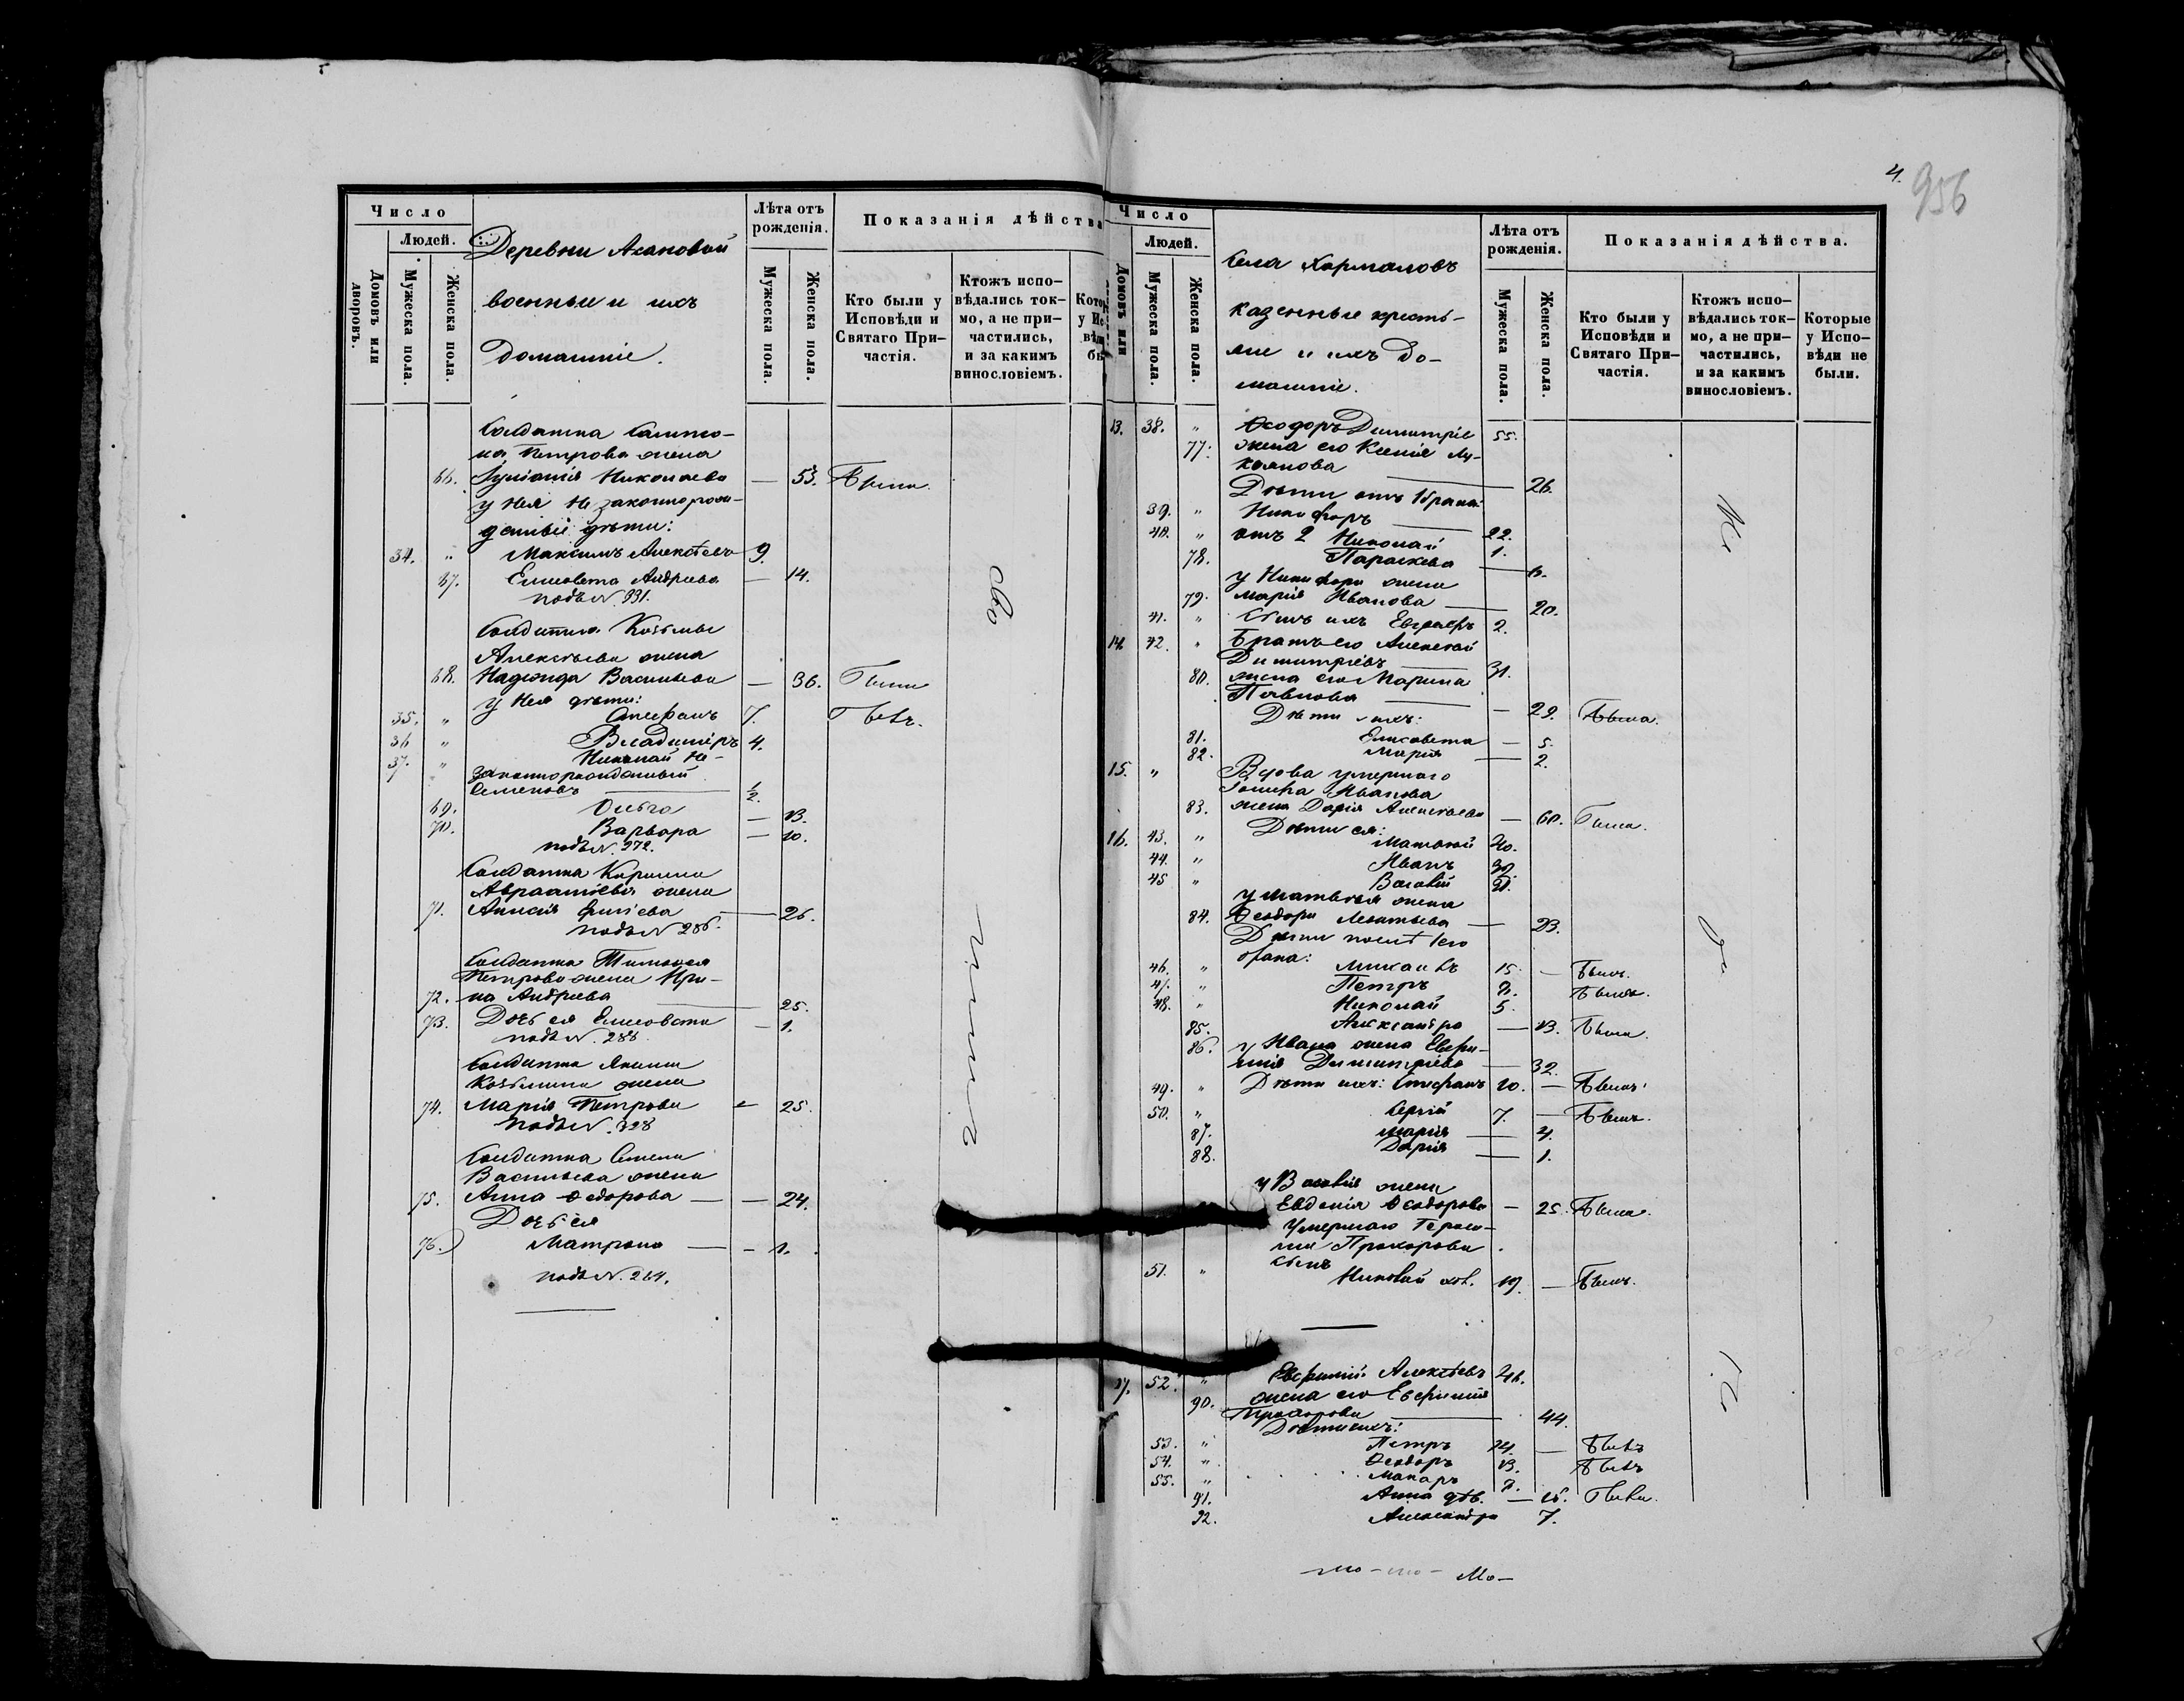 Число
Людей.
Домовъ или дворовъ.
Мужеска пола.
Женска пола.
Деревни Асановой
военные и ихъ
домашніе.
Лѣта отъ рожденія.
Мужеска пола.
Женска пола.
Показанія дѣйства
Кто были у Исповѣди и Святаго Причастія.
Ктожъ испо-
вѣдались ток-
мо, а не при-
частились,
и за какимъ
винословіемъ.
Солдатка
на Петрова жена
66. Іуліанія Николаева — 53. Была.
у нея незаконнорож-
денные дѣти:
34. " Максимъ Алексѣевъ 9.
67. Елисовета Андреева — 14.
подъ N. 331.
Солдатка Козьмы
Алексѣева жена
68. Надежда Васильева — 36. Была
у нея дѣти:
35. " Стефанъ 7. Былъ.
36 " Владиміръ 4.
37. " Николай не-
законнорожденный
Семеновъ — 1/2.
69. Ольга — 13.
70. Варвара — 10.
подъ N. 272.
Солдатка Кирилла
Авраамiева жена
71. — 26.
подъ N 286.
Солдатка Тимофея
Петрова жена Ири-
72. на Андреева — 25.
73. Дочь ея Елисовета — 1.
подъ N. 288.
Солдатка Якима
Козьмина жена
74. Марія Петрова — 25.
подъ N. 328
Солдатка Семена
Васильева жена
75. Анна Ѳедорова — 24.
Дочь ея
76. Матрона — 1.
подъ N. 264.
4.
956
Число
Людей.
Домовъ или
Мужеска пола.
Женска пола.
Села Хормаловъ
казенные кресть-
яне и ихъ до-
машніе.
Лѣта отъ рожденія.
Мужеска пола.
Женска пола.
Показанія дѣйства.
Кто были у Исповѣди и Святаго Причастія.
Ктожъ испо-
вѣдались ток-
мо, а не при-
частились,
и за какимъ
винословіемъ.
Которые у Исповѣди не были.
13. 38. " Ѳеодоръ Димитріе 55.
77. жена его Ксенія Лу-
кьянова — 26.
Дѣти отъ 1 брака:
39. " Никифоръ — 22.
40. " отъ 2 Николай 1.
78. Параскева —
у Никифора жена
79. Марія Иванова — 20.
41. " Сынъ ихъ 2.
14. 42. " Братъ его Алексѣй
Димитріевъ — 31.
80. жена его Марина
Павлова — 29. Была.
Дѣти ихъ:
81. Елисавета — 5.
82. Марія — 2.
15. " Вдова умершаго
Іоиля Иванова
83. жена Дарія Алексѣева — 60. Была.
Дѣти ея:
16. 43. " Матвей 40.
44. " Иванъ
45 " Василій
у Матвея жена
84. Ѳеодора Леонтьева —
Дѣти послѣ 1го
брака:
46. " Михаилъ 15. — Былъ.
47. " Петръ Былъ.
48. " Николай 5.
85. Александра — 13. Была.
86. у Ивана жена Евфи-
мія Димитріева — 32.
49. " Дѣти ихъ: Стефанъ 10. — Былъ.
50. " Сергій 7. — Былъ.
87. Марія — 4.
88. Дарія — 1.
у Василія жена
Евдокія Ѳеодорова — 25. Была.
Умершаго Гераси-
ма Прохорова
сынъ
51. " Николай хол. 19. — Былъ.
17. 52. " Евфимій Алексѣевъ 46.
90. жена его Евфимія
Прохорова — 44.
Дѣти ихъ:
53. " Петръ 14. — Былъ
54. " Ѳеодоръ 13. Былъ
55. " Макаръ
91. Анна дѣв. — Была.
92. Александра 7.